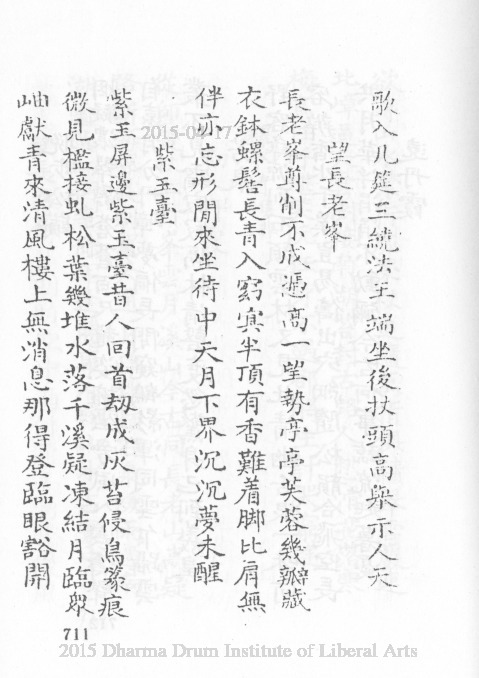 歌入几筵三繞法王端坐後扙頭高舉示人天
望長老峯
長老峯尊削不成憑高一望勢亭亭芙蓉幾瓣藏
衣鉢螺髻長青入窈㝠半頂有香難着脚比肩無
伴亦忘形閒來坐待中天月下界沉沉夢未醒
紫玉臺
紫玉屏邊紫玉臺昔人回首刼成灰苔侵鳥篆痕
微見檻接虬松葉幾堆水落千溪疑凍結月臨眾
岫獻青來清風樓上無消息那得登臨眼豁開
711
2015-04-17
2015 Dharma Drum Institute of Liberal Arts